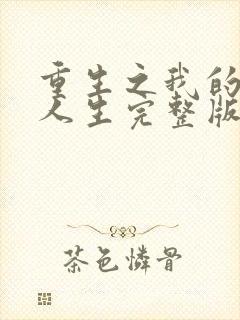 重生之我的
人生完整版
茶色憐骨